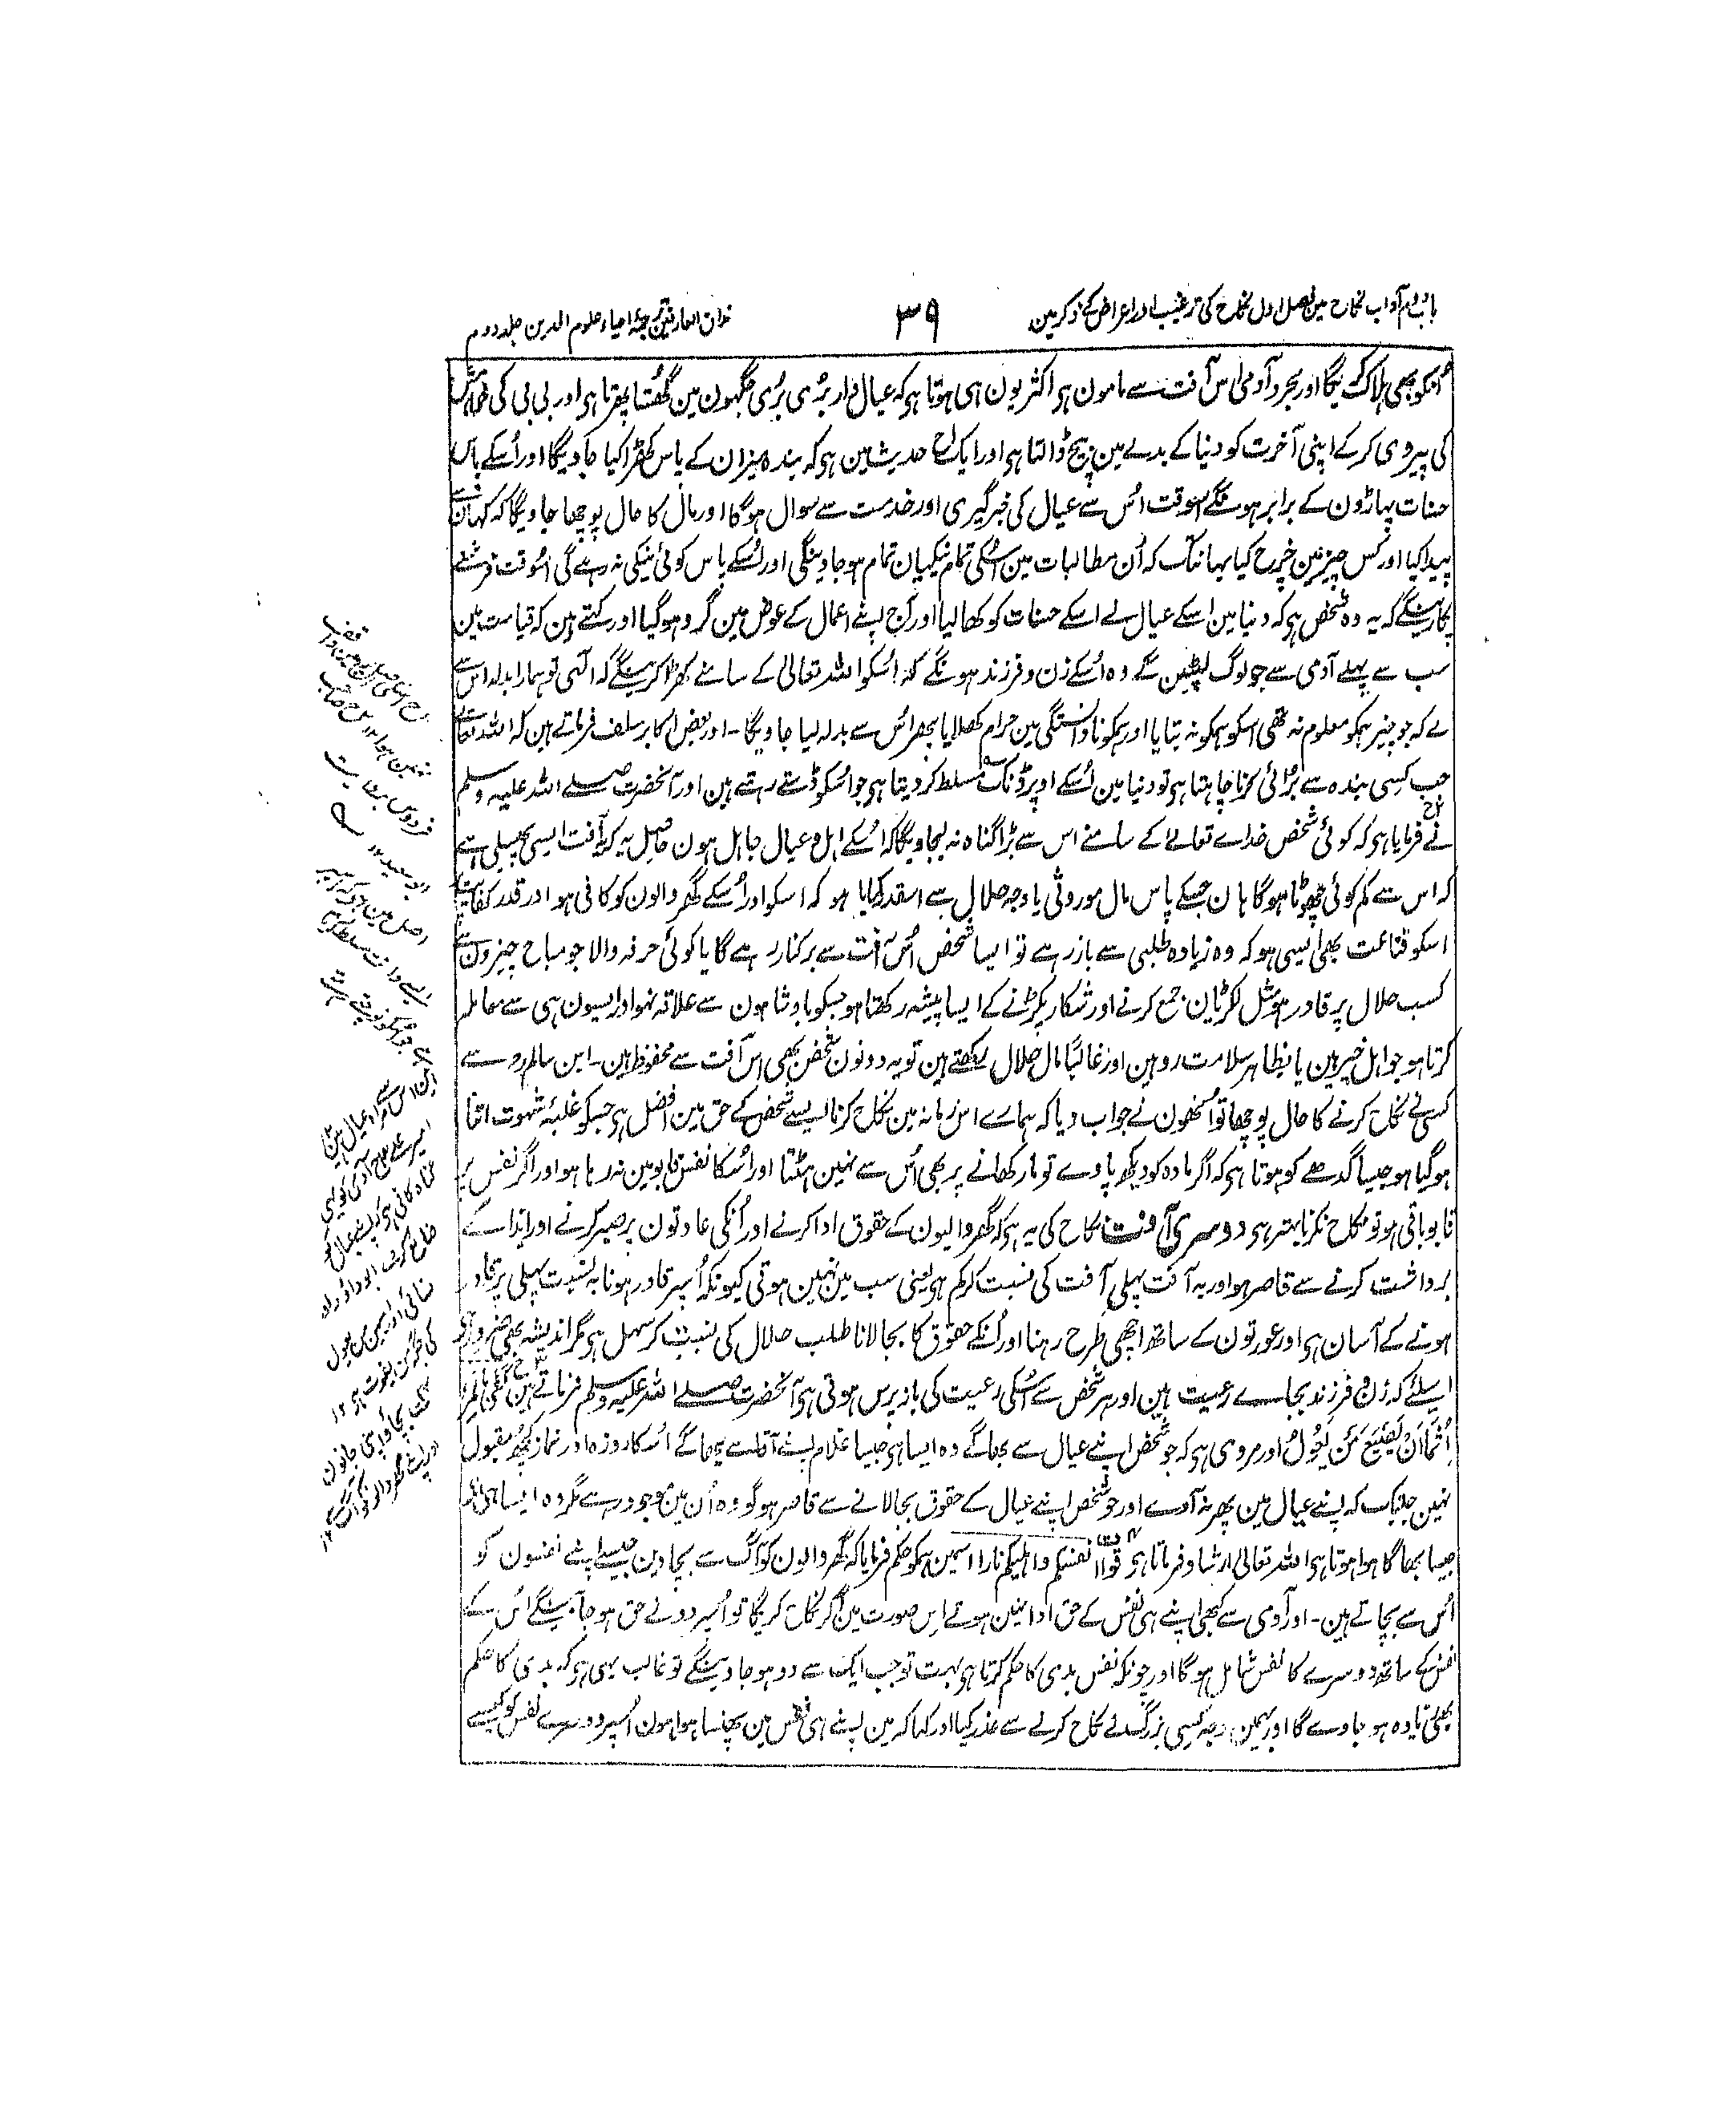 باب دوم آداب نکاح مین فصل اول نکاح کی ترغیب اور اعراض کے ذکر مین
۳۹
مذاق العارفین ترجمۂ احیاء علوم الدین جلد دوم
اُنکو بھی ہلاک کریگا اور مجرد آدمی اس آفت سے مامون ہی اکثر یون ہی ہوتا ہی کہ عیال دار بُری بُری جگہون مین گھُستا پھرتا ہی اور بی بی کی خواہش
کی پیروی کرکے اپنی آخرت کو دنیا کے بدلے مین بیچ ڈالتا ہی اور ایک حدیث مین ہی کہ بندہ میزان کے پاس کھڑا کیا جاویگا اور اُسکے پاس
حسنات پہاڑون کے برابر ہونگے اسوقت اُس سے عیال کی خبرگیری اور خدمت سے سوال ہوگا اور مال کا حال پوچھا جاویگا کہ کہان سے
پیدا کیا اور کس چیز مین خرچ کیا یہانتک کہ اُن مطالبات مین اُسکی تمام نیکیان تمام ہو جاوینگی اور اُسکے پاس کوئی نیکی نہ رہے گی اسُوقت فرشتے
پکارینگے کہ یہ وہ شخص ہی کہ دنیا مین اسکے عیال نے اسکے حسنات کو کھا لیا اور آج اپنے اعمال کے عوض مین گرو ہوگیا اور کہتے ہین کہ قیامت مین
سب سے پہلے آدمی سے جو لوگ لپٹین گے وہ اُسکے زن و فرزند ہونگے کہ اُسکو اللہ تعالیٰ کے سامنے کھڑا کرینگے کہ الٰہی تو ہمارا بدلہ اس سے
لے کہ جو چیز ہمکو معلوم نہ تھی اسکو ہمکو نہ بتایا اور ہمکو نادانستگی مین حرام کھلایا پھر اُس سے بدلہ لیا جاویگا۔ اور بعض اکابر سلف فرماتے ہین کہ اللہ تعالے
جب کسی بندہ سے بُرائی کرنا چاہتا ہی تو دنیا مین اُسکے اوپر ڈنک مسلط کر دیتا ہی جو اسُکو ڈستے رہتے ہین اور آنحضرت صلے اللہ علیہ وسلم
نے فرمایا ہی کہ کوئی شخص خداے تعالےٰ کے سامنے اس سے بڑا گناہ نہ لیجاویگا کہ اُسکے اہل و عیال جاہل ہون حاصل یہ کہ یہ آفت ایسی پھیلی ہے
کہ اس سے کم کوئی چھوٹا ہوگا ہان جسکے پاس مال موروثی یا وجہ حلال سے اسقدر کمایا ہو کہ اسکو اور اُسکے گھر والون کو کافی ہو اور قدر کفایت
اسکو قناعت بھی ایسی ہو کہ وہ زیادہ طلبی سے باز رہے تو ایسا شخص اُس آفت سے برکنار رہے گا یا کوئی حرفہ والا جو مباح چیزون سے
کسب حلال پر قادر ہو مثل لکڑیان جمع کرنے اور شکار پکڑنے کے ایسا پیشہ رکھتا ہو جسکو بادشاہون سے علاقہ نہو اور ایسیون ہی سے معاملہ
کرتا ہو جو اہل خیر ہین یا بظاہر سلامت رو ہین اور غالبًا مال حلال رکھتے ہین تو یہ دونون شخص بھی اس آفت سے محفوظ ہین۔ ابن سالم رہ سے
کسی نے نکاح کرنے کا حال پوچھا تو اُنھون نے جواب دیا کہ ہمارے اس زمانہ مین نکاح کرنا ایسے شخص کے حق مین افضل ہی جسکو غلبۂ شہوت اتنا
ہوگیا ہو جیسا گدھے کو ہوتا ہی کہ اگر مادہ کو دیکھ پاوے تو مار کھانے پر بھی اُس سے نہین ہٹتا اور اُسکا نفس قابو مین نہ رہا ہو اور اگر نفس پر
قابو باقی ہو تو نکاح نکرنا بہتر ہی دوسری آفت نکاح کی یہ ہی کہ گھر والیون کے حقوق ادا کرنے اور اُنکی عادتون پر صبر کرنے اور ایذا کے
برداشت کرنے سے قاصر ہو اور یہ آفت پہلی آفت کی نسبت کر کم ہی یعنی سب مین نہین ہوتی کیونکہ اُسپر قادر ہونا بہ نسبت پہلی پر قادر
ہونے کے آسان ہی اور عورتون کے ساتھ اچھی طرح رہنا اور اُنکے حقوق کا بجالانا طلب حلال کی نسبت کر سہل ہی مگر اندیشہ بھی ضرور ہی
اسلئے کہ زن و فرزند بجاے رعیت ہین اور ہر شخص سے اُسکی رعیت کی باز پرس ہوتی ہی آنحضرت صلے اللہ علیہ وسلم فرماتے ہین کَفٰی بالمَرءِ
اِثْمًا اَنْ یُّضَیِّعَ مَنْ یَّعُوْلُ اور مروی ہی کہ جو شخص اپنے عیال سے بھاگے وہ ایسا ہی جیسا غلام اپنے آقا سے بھاگے اُسکا روزہ اور نماز کچھ مقبول
نہین جبتک کہ اپنے عیال مین پھر نہ آوے اور جو شخص اپنے عیال کے حقوق بجالانے سے قاصر ہو گو وہ اُن مین موجود رہے مگر وہ ایسا ہی ہی
جیسا بھاگا ہوا ہوتا ہی اللہ تعالیٰ ارشاد فرماتا ہی قوا انفسکم واہلیکم نارا اسمین ہمکو حکم فرمایا کہ گھر والون کو آگ سے بچا دین جیسے اپنے نفسون کو
اُس سے بچاتے ہین۔ اور آدمی سے کبھی اپنے ہی نفس کے حق ادا نہین ہوتے اس صورت مین اگر نکاح کریگا تو اُسپر دونے حق ہو جاوینگے اُس کے
نفس کے ساتھ دوسرے کا نفس شامل ہوگا اور چونکہ نفس بدی کا حکم کرتا ہی بہت تو جب ایک سے دو ہو جاوینگے تو غالب یہی ہی کہ بدی کا حکم
بھی زیادہ ہو جاوے گا اور بہمین وجہ کسی بزرگ نے نکاح کرنے سے عذر کیا اور کہا کہ مین اپنے ہی نفس مین پھنسا ہوا ہون اُسپر دوسرے نفس کو کیسے
نہین ہوا ۱۲
فردوس بروایت
ابو سعید ۱۲
اس سے مراد عیال ہین
گناہ کافی ہی کہ اپنے عیال کو
ضائع کرے ابو داؤد رہ
بچاؤ اپنی جانون